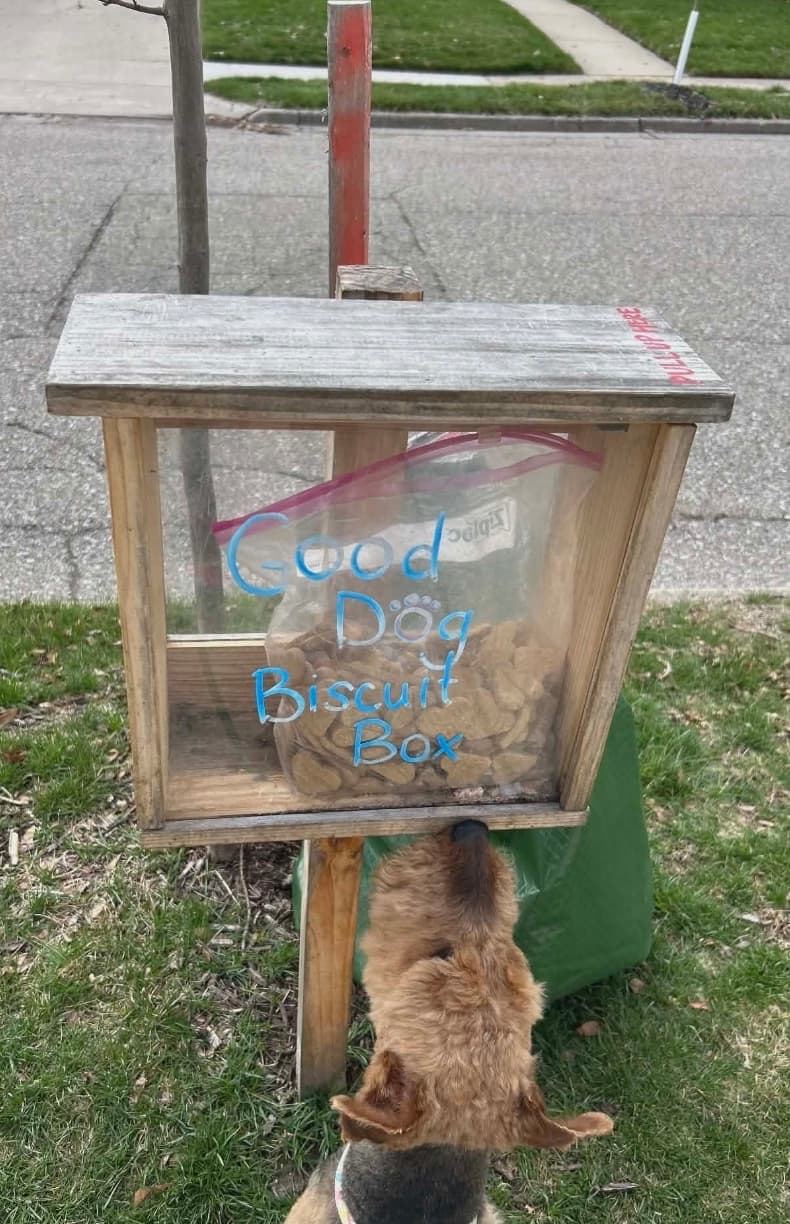 PULL UP HERE
Ziploc
Good
Dog
Biscuit
Box